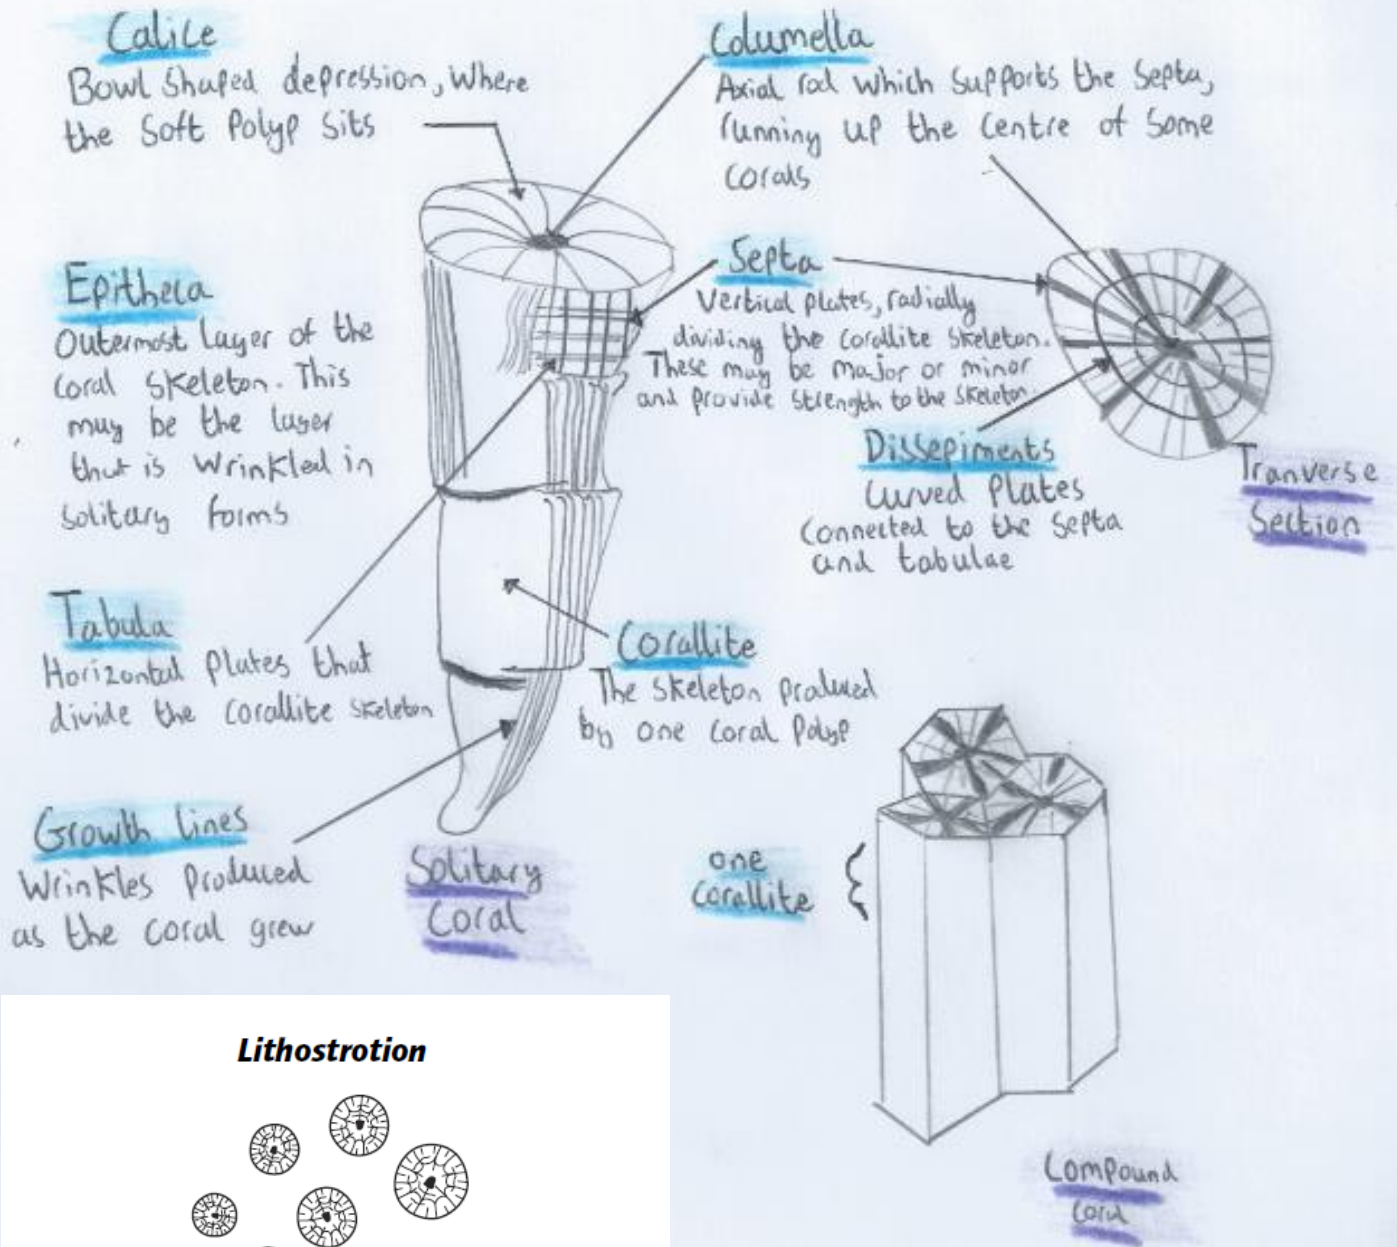 Calice
Bowl Shaped depression, where
the Soft Polyp Sits
Columella
Axial rod which supports the Septa,
running up the centre of some
corals
Epitheca
Outermost layer of the
coral skeleton. This
may be the layer
that is wrinkled in
solitary forms
Septa
Vertical plates, radially
dividing the corallite skeleton.
These may be major or minor
and provide strength to the skeleton.
Dissepiments
Curved plates
connected to the septa
and tabulae
Tranverse
Section
Tabula
Horizontal plates that
divide the corallite skeleton
Corallite
The skeleton produced
by one coral polyp
Growth lines
Wrinkles produced
as the coral grew
Solitary
Coral
one
Corallite
Compound
Coral
Lithostrotion